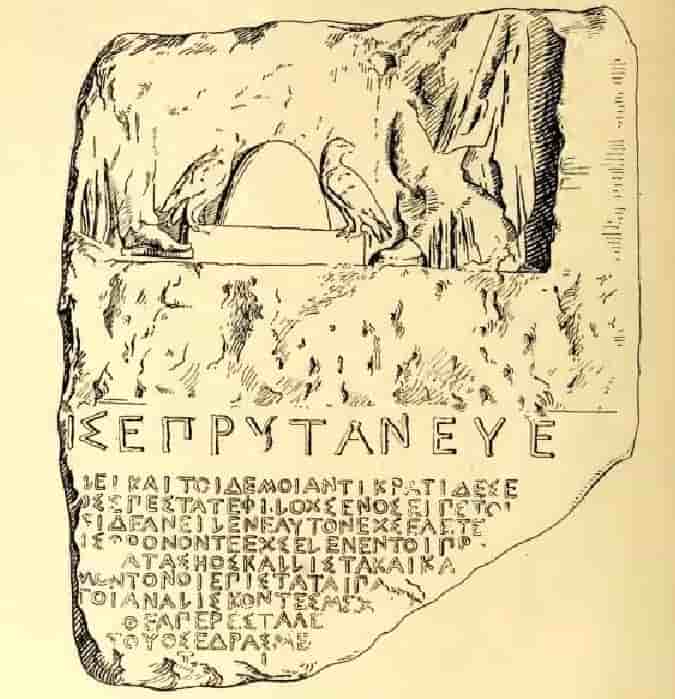 ΙΣΕΠΡΥΤΑΝΕΥΕ
ΛΕΙΚΑΙΤΟΙΔΕΜΟΙΑΝΤΙΚΡΑΤΙΔΕΣΕ
ΟΣΕΠΕΣΤΑΤΕΦΙΛΟΧΣΕΝΟΣΕΙΠΕΤΟΙ
ΕΙΔΕΑΝΕΙΛΕΝΕΑΥΤΟΝΕΧΣΕΛΕΤΕ
ΙΣΘΡΟΝΟΝΤΕΕΧΣΕΛΕΝΕΝΤΟΙΠΡ
ΑΤΑΣΗΟΣΚΑΛΛΙΣΤΑΚΑΙΚΑ
ΜΕΝΤΟΝΟΙΕΠΙΣΤΑΤΑΙΠΑ
ΤΟΙΑΝΑΛΙΣΚΟΝΤΕΣΜΕΧ
ΘΕΑΠΕΡΕΣΤΑΛΕ
ΤΟΥΟΣΕΔΡΑΣΜΕ